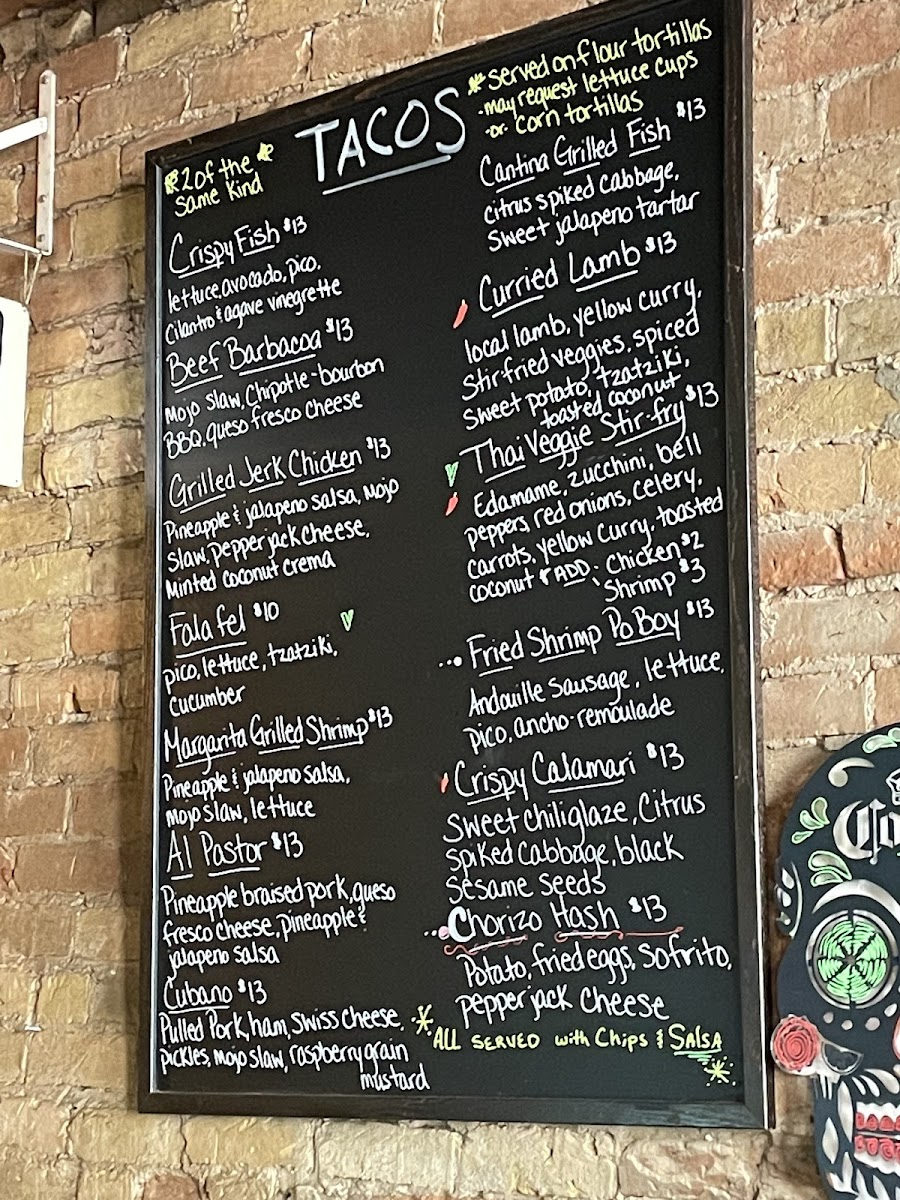 TACOS
2 of the
same kind
Crispy Fish $13
lettuce, avocado, pico,
cilantro & agave vinegrette
Beef Barbacoa $13
Mojo slaw, Chipotle-bourbon
BBQ, queso fresco cheese
Grilled Jerk Chicken $13
Pineapple & jalapeno salsa, Mojo
slaw, pepper jack cheese,
Minted coconut crema
Falafel $10
pico, lettuce, tzatziki,
cucumber
Margarita Grilled Shrimp $13
Pineapple & jalapeno salsa,
mojo slaw, lettuce
Al Pastor $13
Pineapple braised pork, queso
fresco cheese, pineapple &
jalapeno salsa
Cubano $13
Pulled Pork, ham, Swiss cheese,
pickles, mojo slaw, raspberry grain
mustard
* Served on flour tortillas
- may request lettuce cups
-or corn tortillas
Cantina Grilled Fish $13
citrus spiked cabbage,
Sweet jalapeno tartar
Curried Lamb $13
local lamb, yellow curry,
Stirfried veggies, spiced
Sweet potato, tzatziki,
toasted coconut
Thai Veggie Stir-fry $13
Edamame, zucchini, bell
peppers, red onions, celery,
carrots, yellow curry, toasted
coconut * ADD: Chicken $2
Shrimp $3
Fried Shrimp Po Boy $13
Andouille Sausage, lettuce,
pico, ancho-remoulade
Crispy Calamari $13
Sweet chili glaze, Citrus
spiked cabbage, black
sesame seeds
Chorizo Hash $13
Potato, fried eggs, Sofrito,
pepper jack cheese
* ALL SERVED with Chips & SALSA